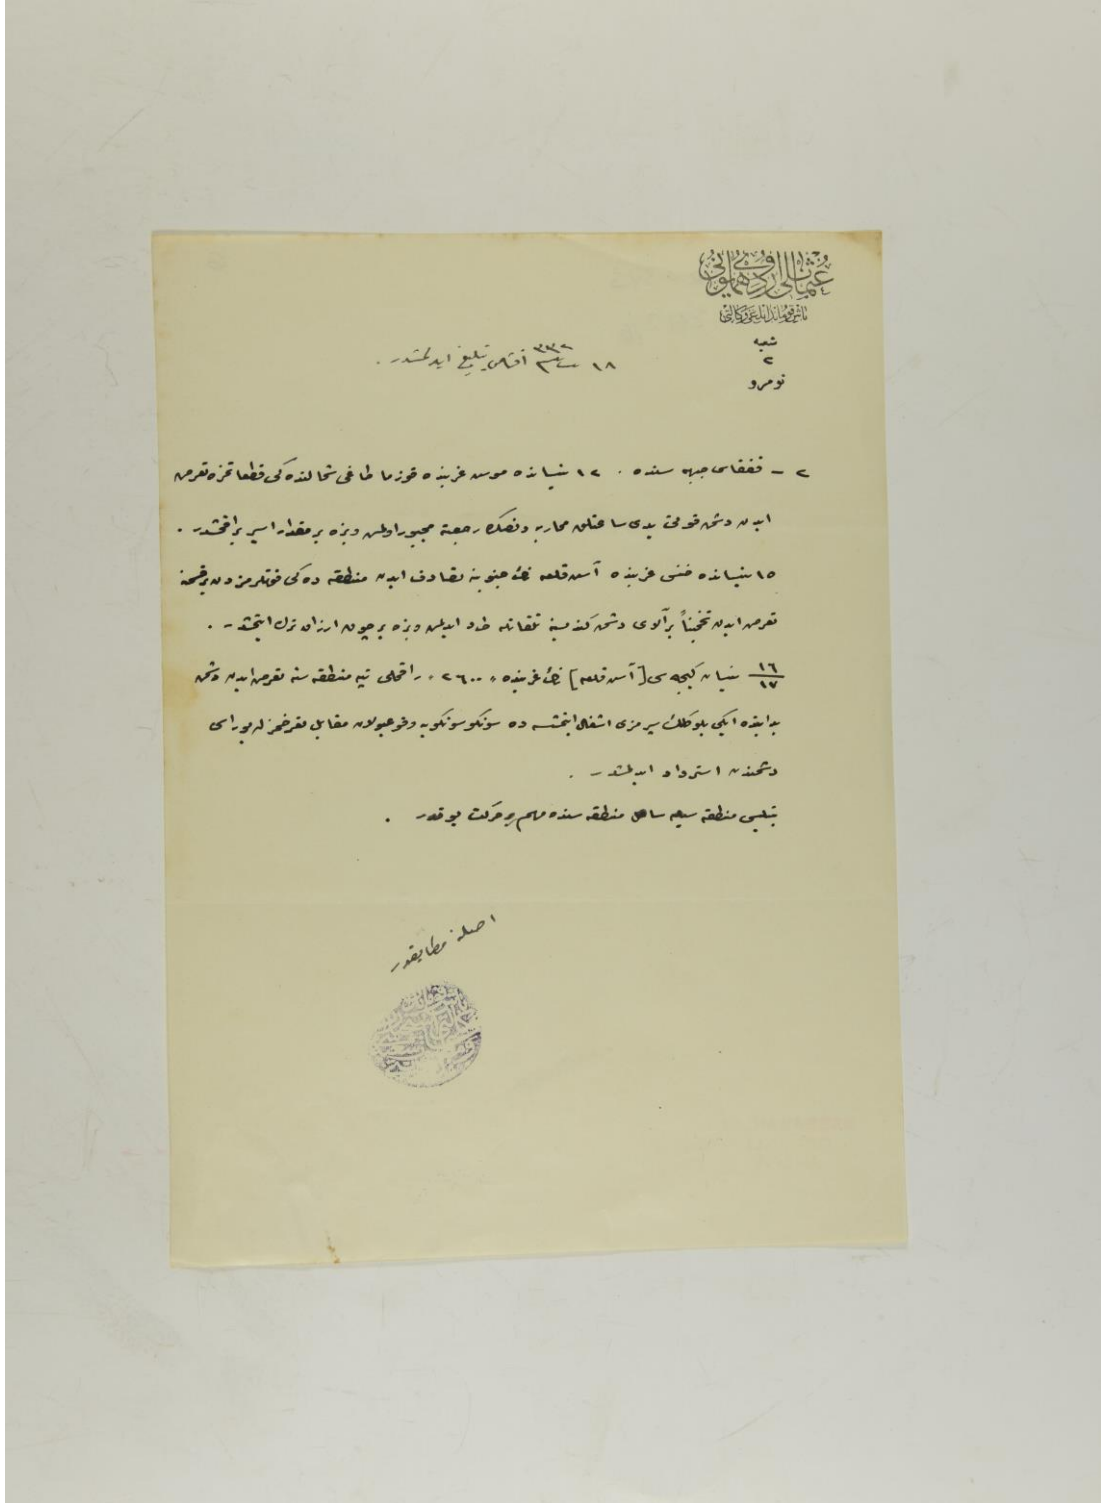 عثمانلی اردوی همایونی
باش قوماندانلغی وكالتی
شعبه
٢
نومرو
١٨ نیسان ٣٣٢ آقشامی تبلیغ ایدلمشدر .
٢ – قفقاس جبهه سنده . ١٢ نیسانده موس غربنده قوزما طاغی شمالنده كی قطعاتمزه تعرض
ایدن دشمن قوتی یدی ساعتلق محاربه دنصكره رجعته مجبور اولمش ویزه بر مقدار اسیر براقمشدر .
١٥ نیسانده غربنده آسن قلعه نك جنوبنه تصادف ایدن منطقه ده كی قوتلرمزدن بر قسمنه
تعرض ایدن تخمیناً بر آلای دشمن كندیسنه تلفاتله طرد ایدلمش ویزه بر چوق ارزاق ترك ایتمشدر .
١٦/١٧ نیسان كیجه سی [آسن قلعه] نك غربنده « ٢٦٠٠ » راقملی تپه منطقه سنه تعرض ایدن دشمن
بدایتده ایكی بلوكلك سپرمزی اشغال ایتمشسه ده سونكو سونكویه وقوعبولان مقابل تعرضمزله بوراسی
دشمندن استرداد ایدلمشدر .
بتلیس منطقه سیله ساحل منطقه سنده مهم بر حركت یوقدر .
اصلنه مطابقدر